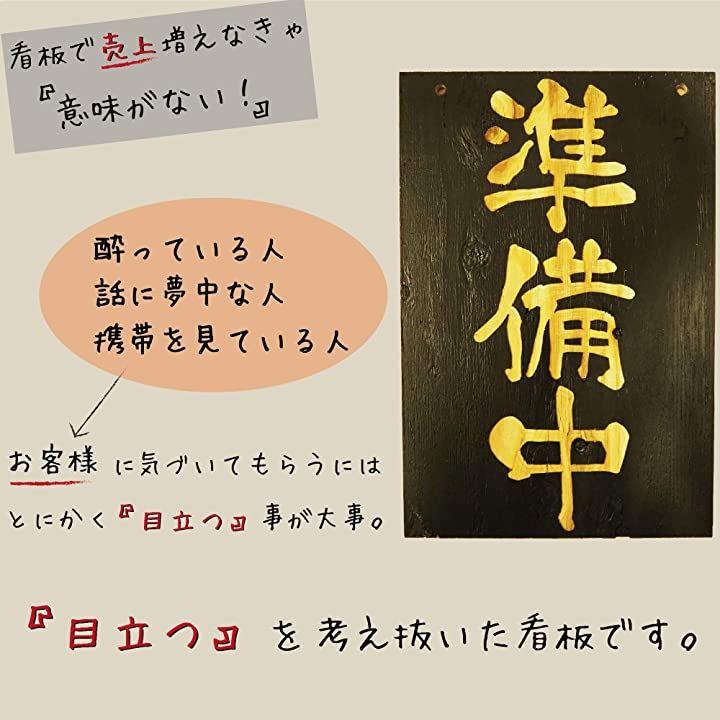 看板で売上増えなきゃ
『意味がない！』
酔っている人
話に夢中な人
携帯を見ている人
お客様に気づいてもらうには
とにかく『目立つ』事が大事。
準備中
『目立つ』を考え抜いた看板です。